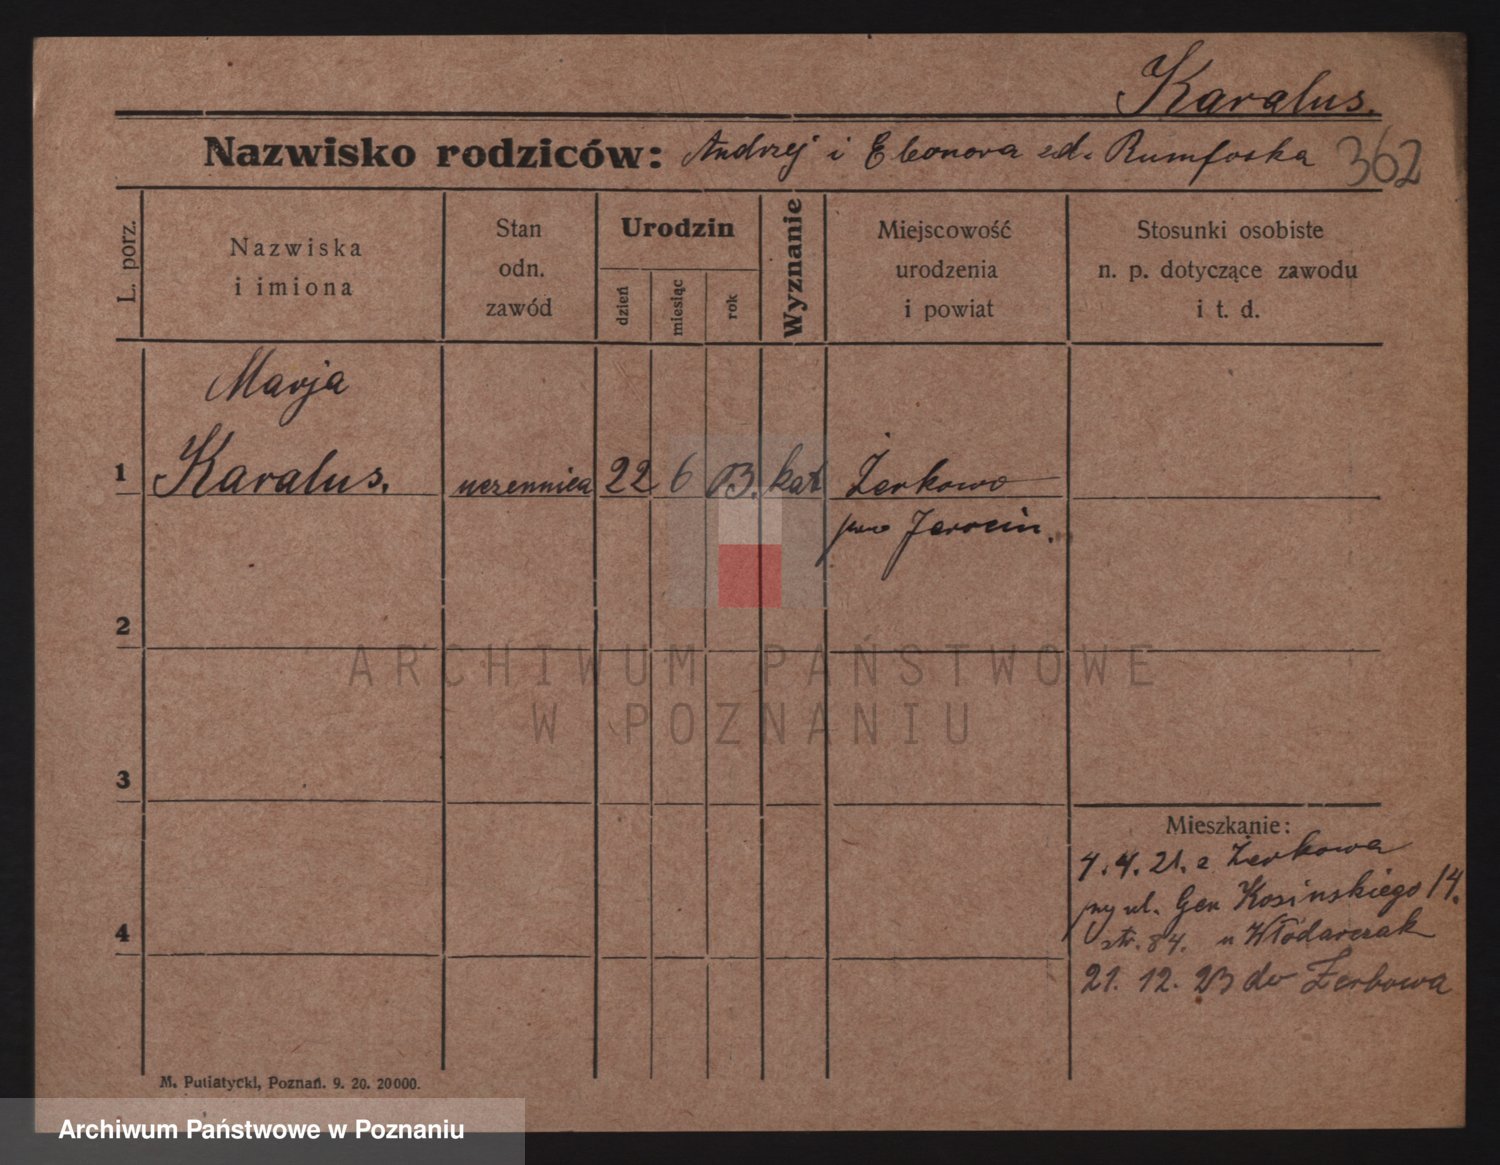 Karalus.
Nazwisko rodziców: Andrzej i Eleonora zd. Rumfoska 362
L. porz.
Nazwiska
i imiona
Stan
odn.
zawód
Urodzin
dzień
miesiąc
rok
Wyznanie
Miejscowość
urodzenia
i powiat
Stosunki osobiste
n. p. dotyczące zawodu
i t. d.
Marja
1 Karalus. uczennica 22 6 03. kat Żerkowo
pow Jarocin.
2
ARCHIWUM PAŃSTWOWE
W POZNANIU
3
Mieszkanie:
4.4.21. z Żerkowa
przy ul. Gen Kosinskiego 14.
4
str. 84. u Włodarczak
21. 12. 23 do Żerkowa
M. Putiatycki, Poznań. 9. 20. 20000.
Archiwum Państwowe w Poznaniu